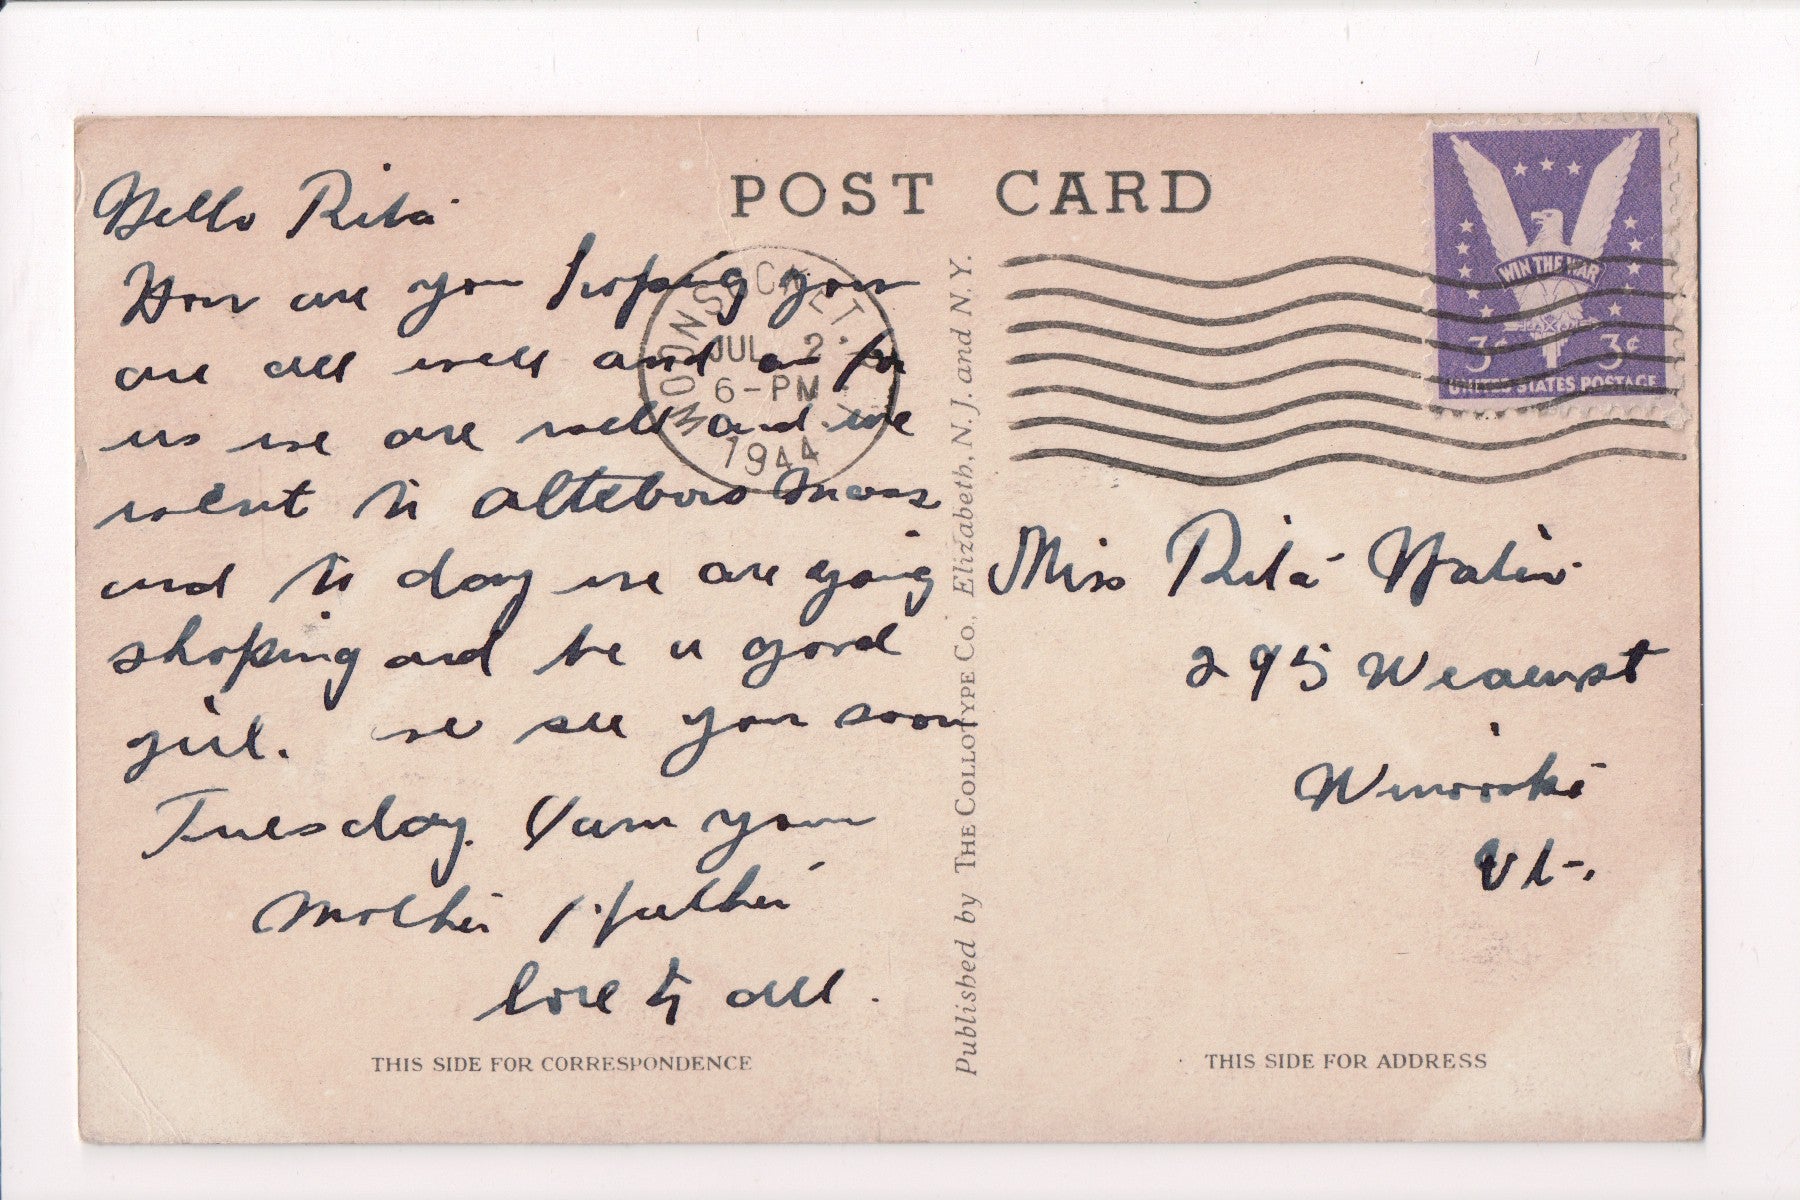 POST CARD
Hello Rita
How are you hoping you
are all well and as for
us we are well and we
went to alteboro Mass
and to day we are going
shoping and be a good
girl. we see you soon
Tuesday. I am your
Mother & father
love to all.
THIS SIDE FOR CORRESPONDENCE
WOONSOCKET
JUL 2
6-PM
1944
Published by THE COLLOTYPE CO., Elizabeth, N.J. and N.Y.
WIN THE WAR
3¢ 3¢
UNITED STATES POSTAGE
Miss Rita
295 Weaver st
Winooski
Vt.
THIS SIDE FOR ADDRESS